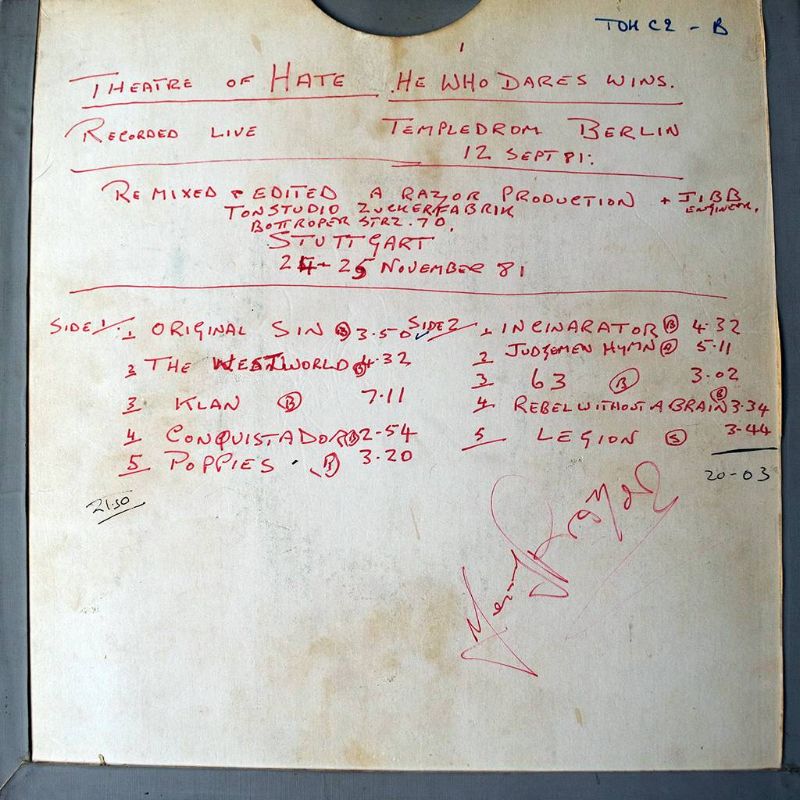 TOH C2 - B
THEATRE OF HATE HE WHO DARES WINS.
RECORDED LIVE TEMPLEDROM BERLIN
12 SEPT 81.
REMIXED + EDITED A RAZOR PRODUCTION + JIBB
ENGINEER.
TONSTUDIO ZUCKERFABRIK
BOTTROPER STRZ. 70.
STUTTGART
24-25 NOVEMBER 81
SIDE 1
1 ORIGINAL SIN B 3.50
2 THE WESTWORLD B 4.32
3 KLAN B 7.11
4 CONQUISTADOR B 2-54
5 POPPIES B 3.20
21.50
SIDE 2
1 INCINARATOR B 4.32
2 JUDGEMEN HYMN B 5.11
3 63 B 3.02
4 REBEL WITHOUT A BRAIN B 3.34
5 LEGION S 3-44
20-03